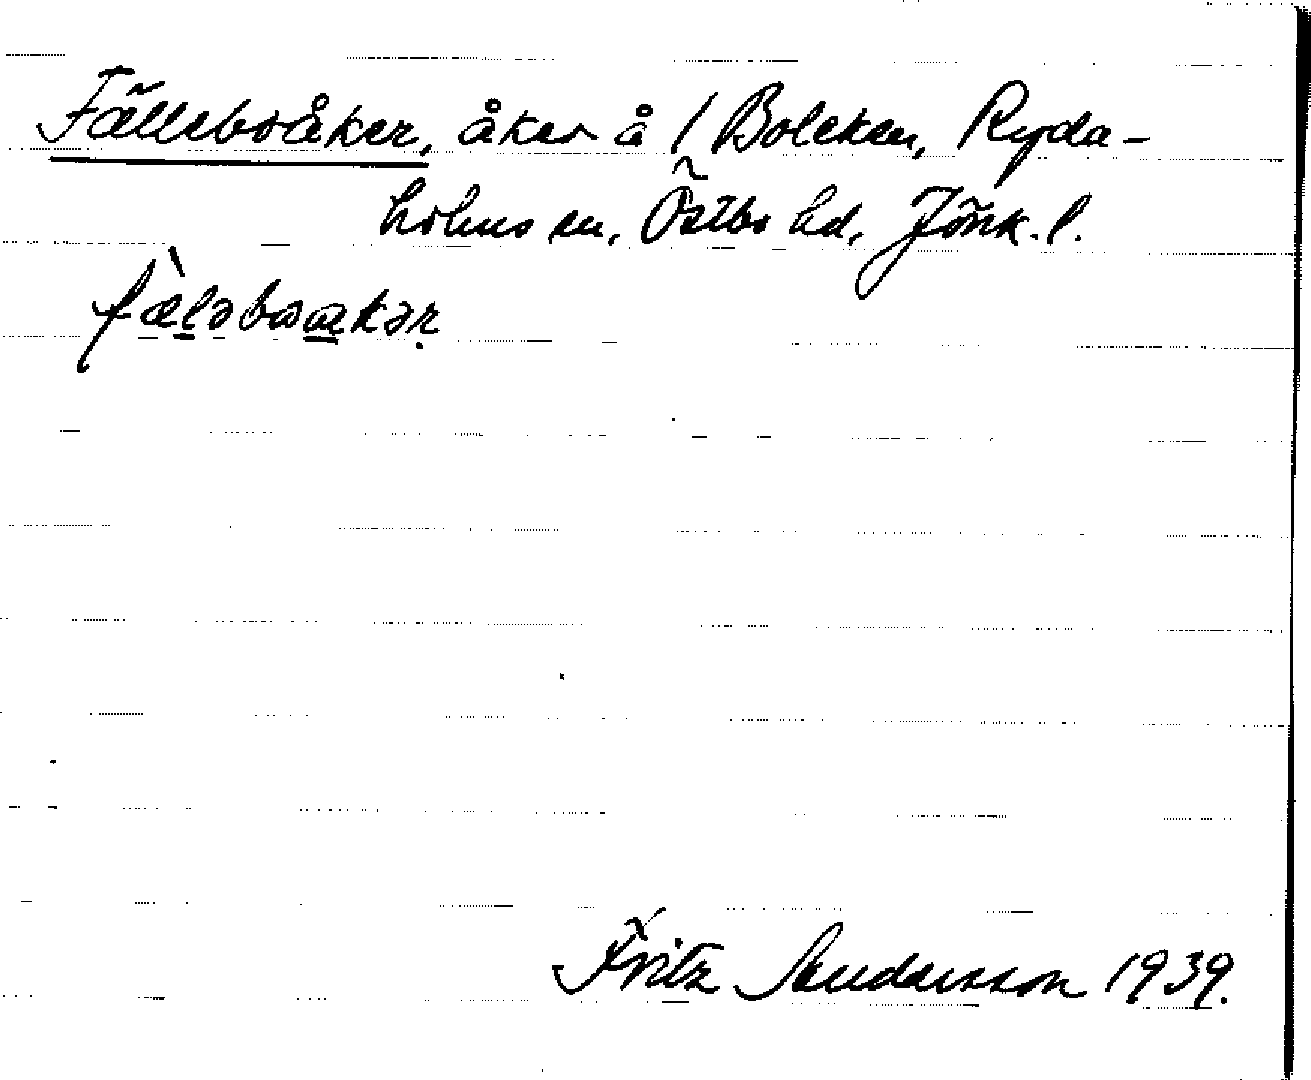 Fälleboåker, åker å / Boleken, Ryda-
holms sn, Östbo hd, Jönk. l.
fæ̀ləbωakər
Fritz Sandersson 1939.